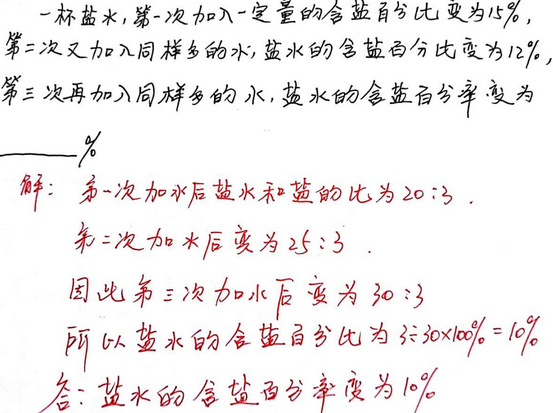 一杯盐水,第一次加入一定量的含盐百分比变为15%,
第二次又加入同样多的水,盐水的含盐百分比变为12%,
第三次再加入同样多的水,盐水的含盐百分率变为
______%
解:第一次加水后盐水和盐的比为20:3.
第二次加水后变为25:3.
因此第三次加水后变为30:3
所以盐水的含盐百分比为3÷30×100%=10%
答:盐水的含盐百分率变为10%